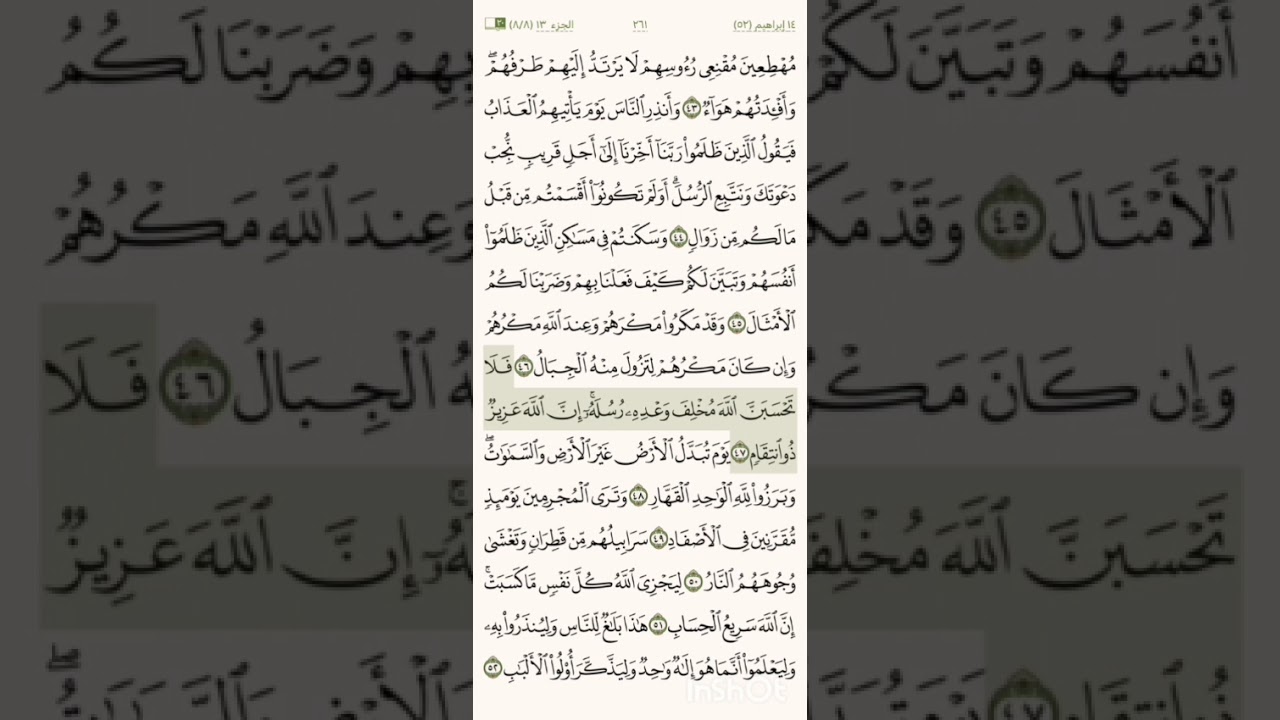 ١٤ إبراهيم (٥٢) ٢٦١ الجزء ١٣ (٨/٨) ٢٠
مُهْطِعِينَ مُقْنِعِى رُءُوسِهِمْ لَا يَرْتَدُّ إِلَيْهِمْ طَرْفُهُمْ ۖ
وَأَفْـِٔدَتُهُمْ هَوَآءٌ ٤٣ وَأَنذِرِ ٱلنَّاسَ يَوْمَ يَأْتِيهِمُ ٱلْعَذَابُ
فَيَقُولُ ٱلَّذِينَ ظَلَمُوا۟ رَبَّنَآ أَخِّرْنَآ إِلَىٰٓ أَجَلٍ قَرِيبٍ نُّجِبْ
دَعْوَتَكَ وَنَتَّبِعِ ٱلرُّسُلَ ۗ أَوَلَمْ تَكُونُوٓا۟ أَقْسَمْتُم مِّن قَبْلُ
مَا لَكُم مِّن زَوَالٍ ٤٤ وَسَكَنتُمْ فِى مَسَٰكِنِ ٱلَّذِينَ ظَلَمُوٓا۟
أَنفُسَهُمْ وَتَبَيَّنَ لَكُمْ كَيْفَ فَعَلْنَا بِهِمْ وَضَرَبْنَا لَكُمُ
ٱلْأَمْثَالَ ٤٥ وَقَدْ مَكَرُوا۟ مَكْرَهُمْ وَعِندَ ٱللَّهِ مَكْرُهُمْ
وَإِن كَانَ مَكْرُهُمْ لِتَزُولَ مِنْهُ ٱلْجِبَالُ ٤٦ فَلَا
تَحْسَبَنَّ ٱللَّهَ مُخْلِفَ وَعْدِهِۦ رُسُلَهُۥٓ ۗ إِنَّ ٱللَّهَ عَزِيزٌ
ذُو ٱنتِقَامٍ ٤٧ يَوْمَ تُبَدَّلُ ٱلْأَرْضُ غَيْرَ ٱلْأَرْضِ وَٱلسَّمَٰوَٰتُ ۖ
وَبَرَزُوا۟ لِلَّهِ ٱلْوَٰحِدِ ٱلْقَهَّارِ ٤٨ وَتَرَى ٱلْمُجْرِمِينَ يَوْمَئِذٍ
مُّقَرَّنِينَ فِى ٱلْأَصْفَادِ ٤٩ سَرَابِيلُهُم مِّن قَطِرَانٍ وَتَغْشَىٰ
وُجُوهَهُمُ ٱلنَّارُ ٥٠ لِيَجْزِىَ ٱللَّهُ كُلَّ نَفْسٍ مَّا كَسَبَتْ ۚ
إِنَّ ٱللَّهَ سَرِيعُ ٱلْحِسَابِ ٥١ هَٰذَا بَلَٰغٌ لِّلنَّاسِ وَلِيُنذَرُوا۟ بِهِۦ
وَلِيَعْلَمُوٓا۟ أَنَّمَا هُوَ إِلَٰهٌ وَٰحِدٌ وَلِيَذَّكَّرَ أُو۟لُوا۟ ٱلْأَلْبَٰبِ ٥٢
InShOt